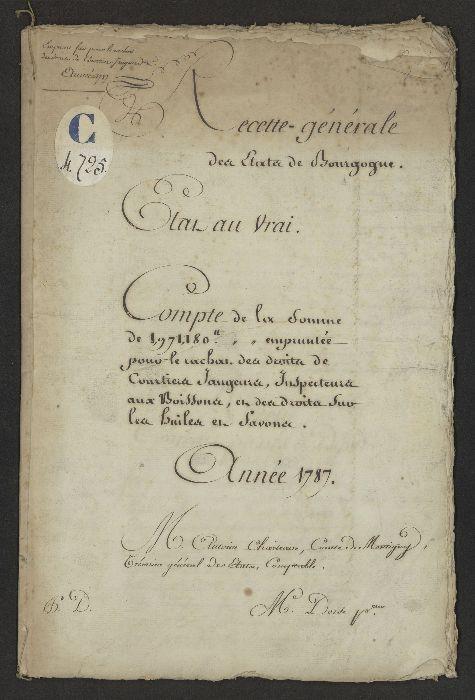 Emprunt fait pour le rachat
des droits de Courtiers Jaugeurs &
C
4.725.
Recette-générale
des Etats de Bourgogne.
Etat au Vrai.
Compte de la Somme
de 1,971,180ᵗᵗ " " empruntée
pour le rachat des droits de
Courtiers Jaugeurs, Inspecteurs
aux Boissons, et des droits sur
les huiles et Savons.
Année 1787.
M. Antoine Chartraire, Comte de Montigny,
Trésorier général des Etats, Comptable.
Mᵉ